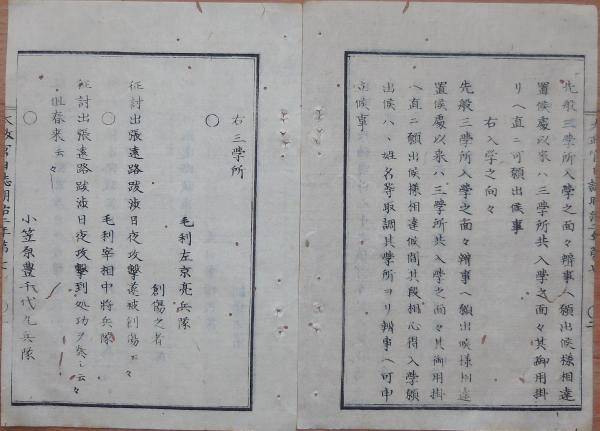 先般三学所入学之面々辨事ヘ願出候様相達
置候處以来ハ三学所共入学之面々其御用掛
リヘ直ニ可願出候事
右入学之向々
先般三学所入学之面々辨事ヘ願出候様相達
置候處以来ハ三学所共入学之面々其御用掛
ヘ直ニ願出候様相達候間其段相心得入学願
出候ハヽ姓名等取調其学所ヨリ辨事ヘ可申
出候事
右三学所
〇
毛利左京亮兵隊
創傷之者
征討出張遠路跋渉日夜攻撃遂被創傷云々
〇
毛利宰相中将兵隊
征討出張遠路跋渉日夜攻撃到処功ヲ奏シ云々
但春来云々
〇
小笠原豊千代丸兵隊
太政官日誌明治二年第七